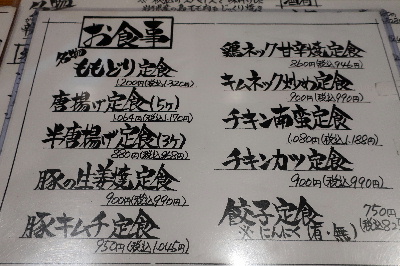 お食事
名物 ももどり定食
1,200円(税込1,320円)
唐揚げ定食(5ヶ)
1,064円(税込1,170円)
半唐揚げ定食(3ヶ)
880円(税込968円)
豚の生姜焼定食
900円(税込990円)
豚キムチ定食
950円(税込1,045円)
鶏ネック甘辛焼定食
860円(税込946円)
キムネック炒め定食
900円(税込990円)
チキン南蛮定食
1,080円(税込1,188円)
チキンカツ定食
900円(税込990円)
餃子定食
750円
(税込825
※にんにく(有・無)